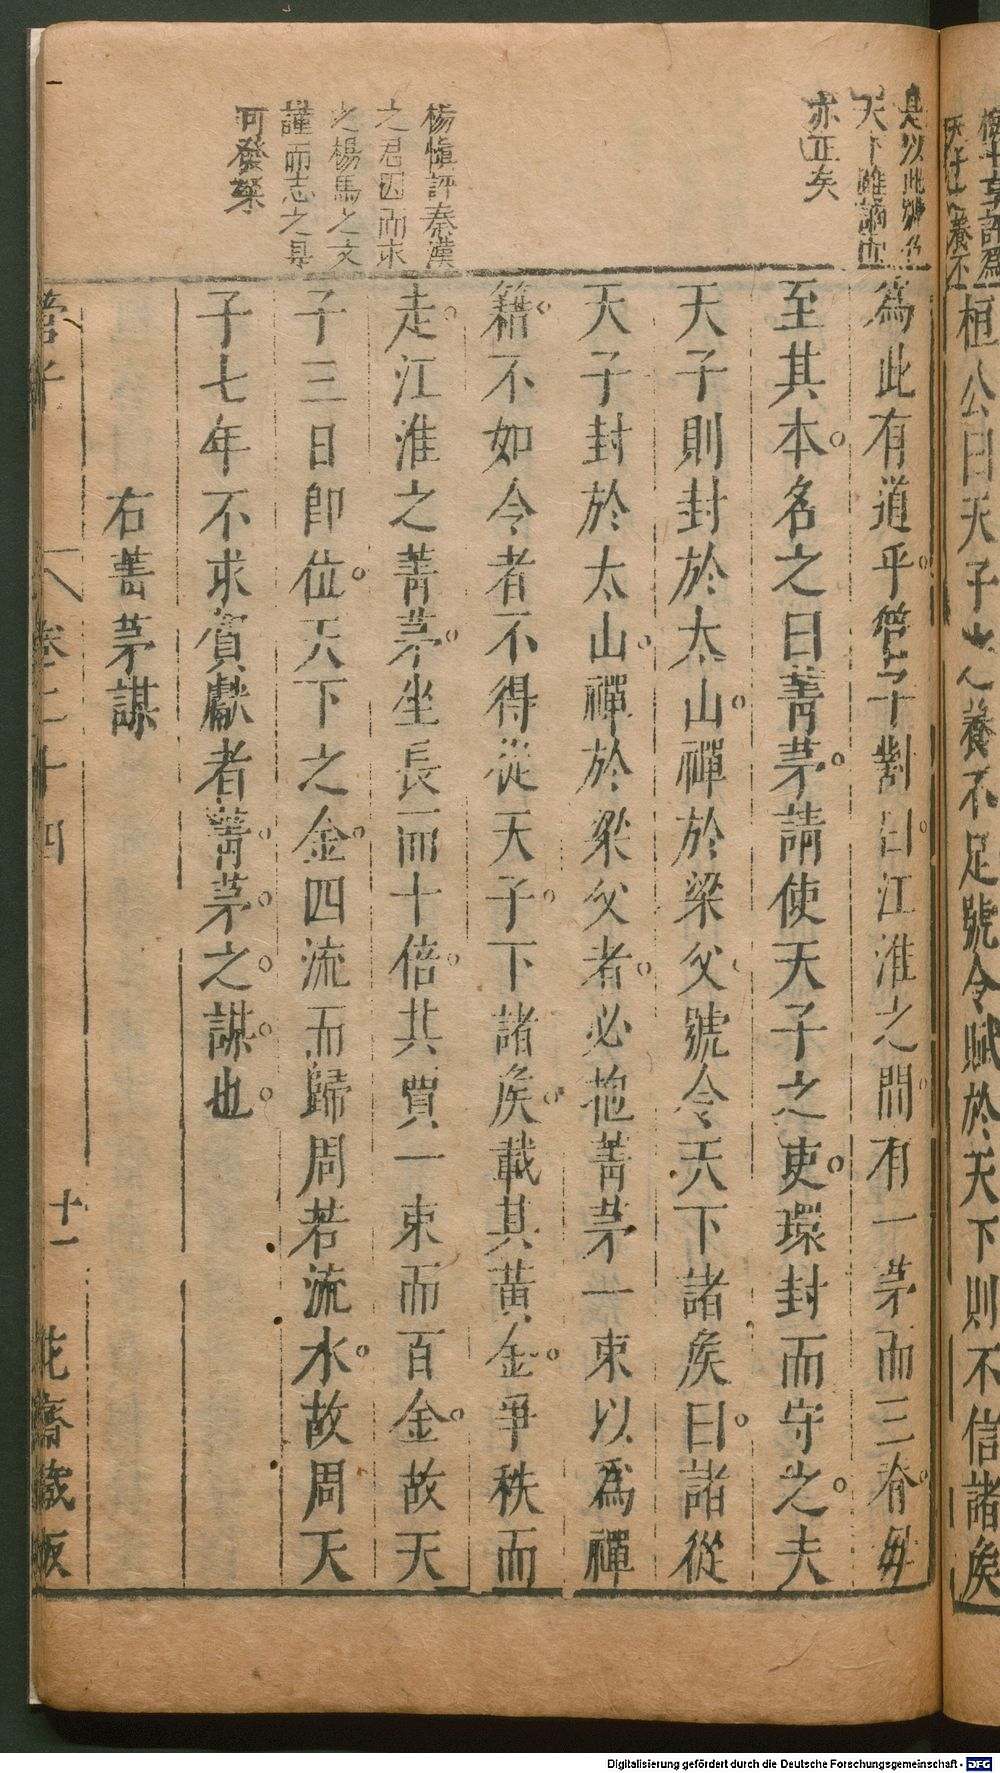 桓公曰天子之養不足號令賦於天下則不信諸矦
是以此
天下雖譎而
亦正矣
為此有道乎管子對曰江淮之間有一茅而三脊毋
至其本名之曰菁茅請使天子之吏環封而守之夫
天子則封於太山禪於梁父號令天下諸矦曰諸從
天子封於太山禪於梁父者必抱菁茅一束以為禪
籍不如令者不得從天子下諸矦載其黃金爭秩而
楊慎評秦漢
之君因而求
之楊馬之文
謹而志之具
可發笑
走江淮之菁茅坐長而十倍其賈一束而百金故天
子三日即位天下之金四流而歸周若流水故周天
子七年不求賀獻者菁茅之謀也
右菁茅謀
管子
卷二十四
十一
花齋藏板
Digitalisierung gefördert durch die Deutsche Forschungsgemeinschaft - DFG